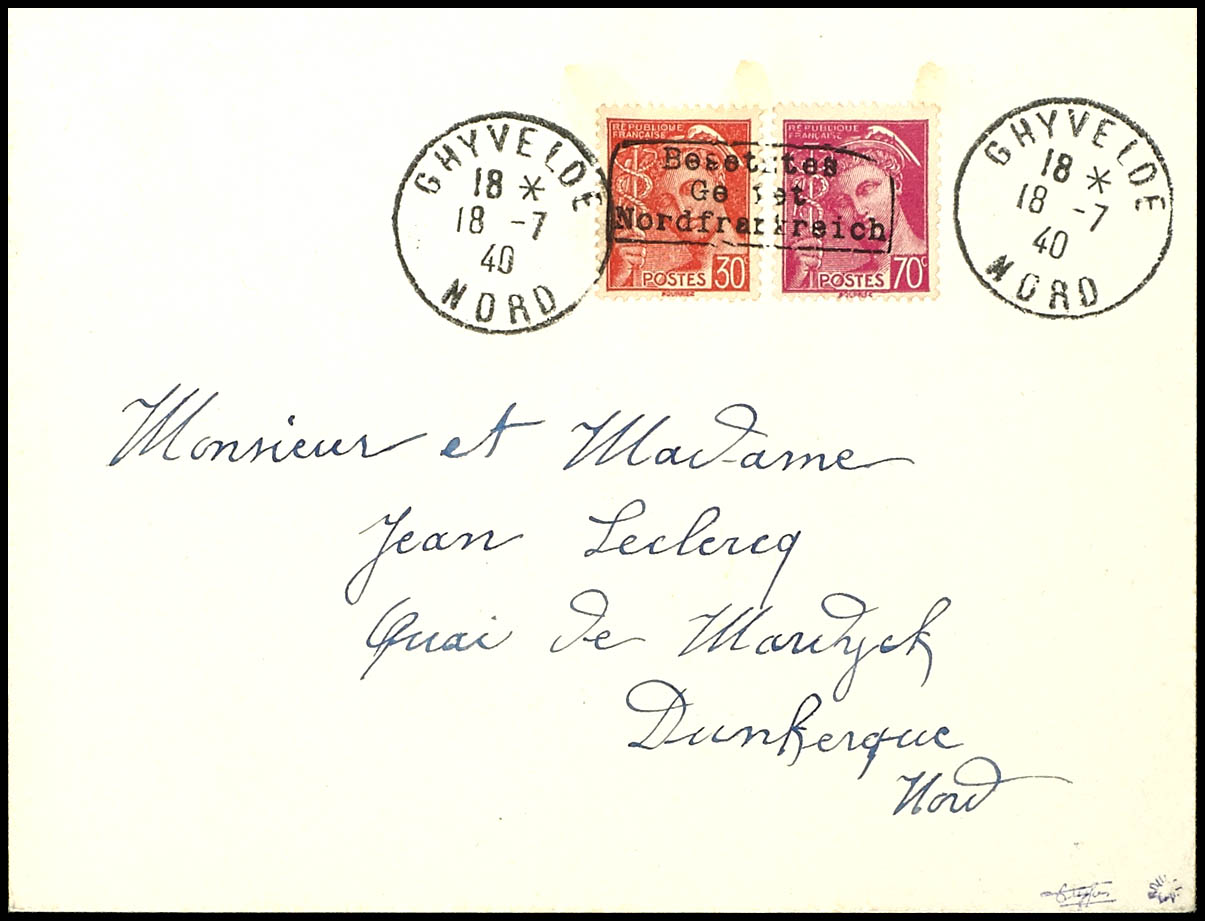 GHYVELDE
18 *
18 -7
40
NORD
RÉPUBLIQUE
FRANÇAISE
POSTES 30c
RÉPUBLIQUE
FRANÇAISE
POSTES 70c
Besetztes
Ge iet
Nordfrankreich
GHYVELDE
18 *
18 -7
40
NORD
Monsieur et Madame
Jean Leclercq
Quai de Mardyck
Dunkerque
Nord